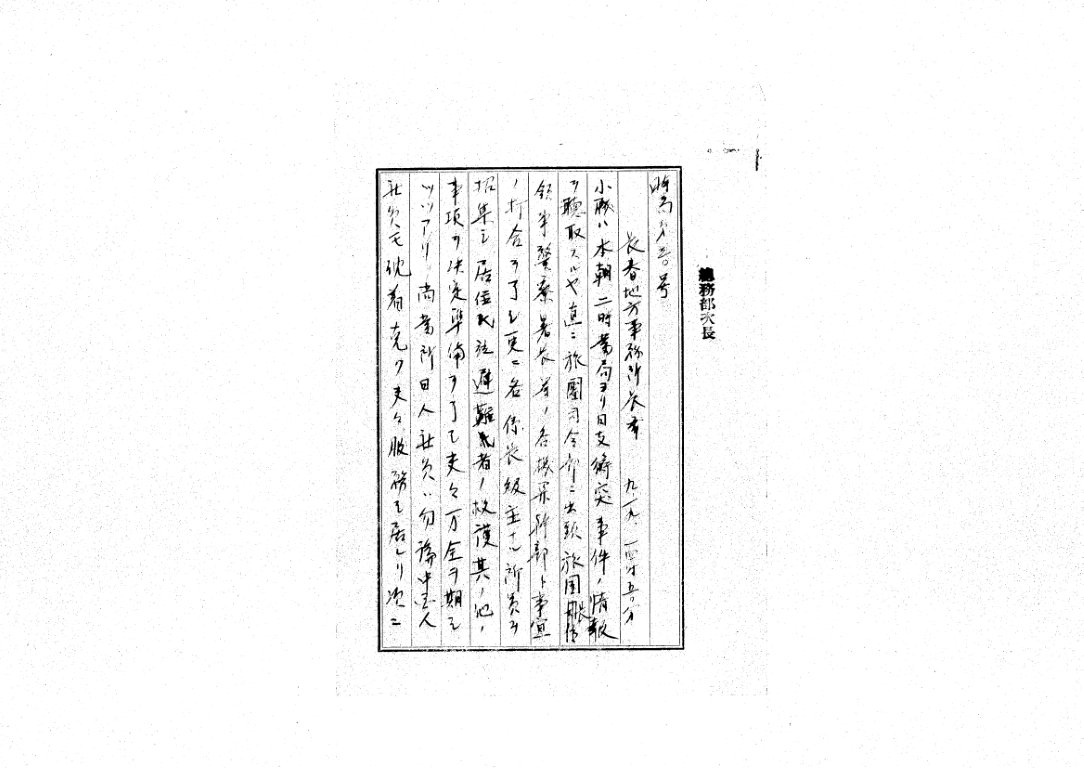 總務部次長
時局第三〇号
長春地方事務所長寿 九、一九、一四時五〇分
小職ハ本朝二時当局ヨリ日支衝突事件ノ情報
ヲ聴取スルヤ直ニ旅團司令部ニ出頭旅団長
領事警察署長等ノ各機関幹部ト事宜
ノ打合ヲ了シ更ニ各係長級主ナル所員ヲ
招集シ居住民並避難者ノ救護其ノ他ノ
事項ヲ決定準備ヲ了シ夫々万全ヲ期シ
ツツアリ 尚当所日人社員ハ勿論中国人
社員モ沈着克ク夫々服務シ居レリ 次ニ